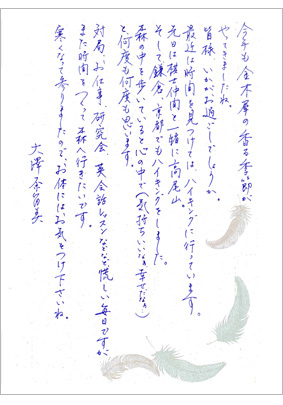 今年も金木犀の香る季節が
やってきましたね。
皆様、いかがお過ごしでしょうか。
最近は時間を見つけては、ハイキングに行っています。
先日は棋士仲間と一緒に高尾山。
そして鎌倉、京都でもハイキングをしました。
森の中を歩いていると心の中で(気持ちいいな。幸せだなぁ)
と何度も何度も思います。
対局、お仕事、研究会、英会話レッスンなどなど慌しい毎日ですが
また時間をつくって森へ行きたいです。
寒くなって参りましたので、お体にはお気をつけ下さいね。
大澤奈留美